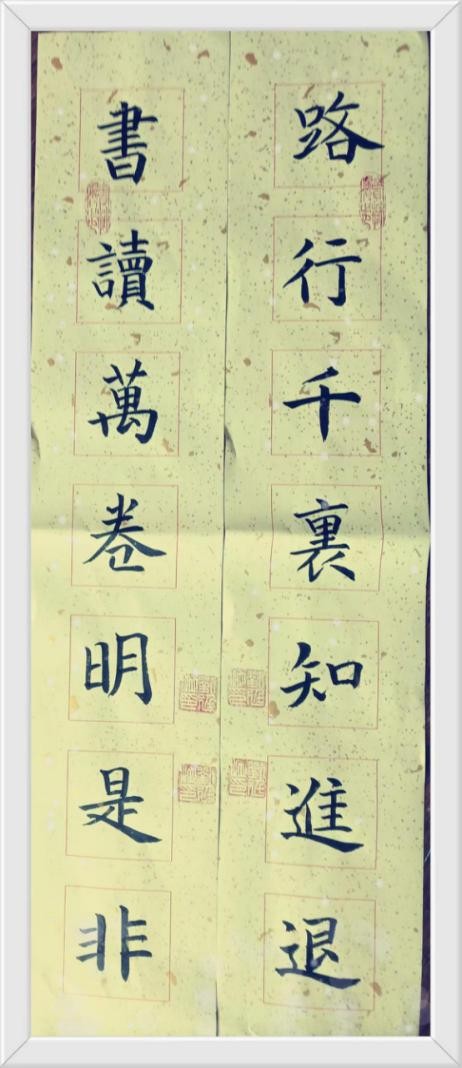 路行千裏知進退
書讀萬卷明是非